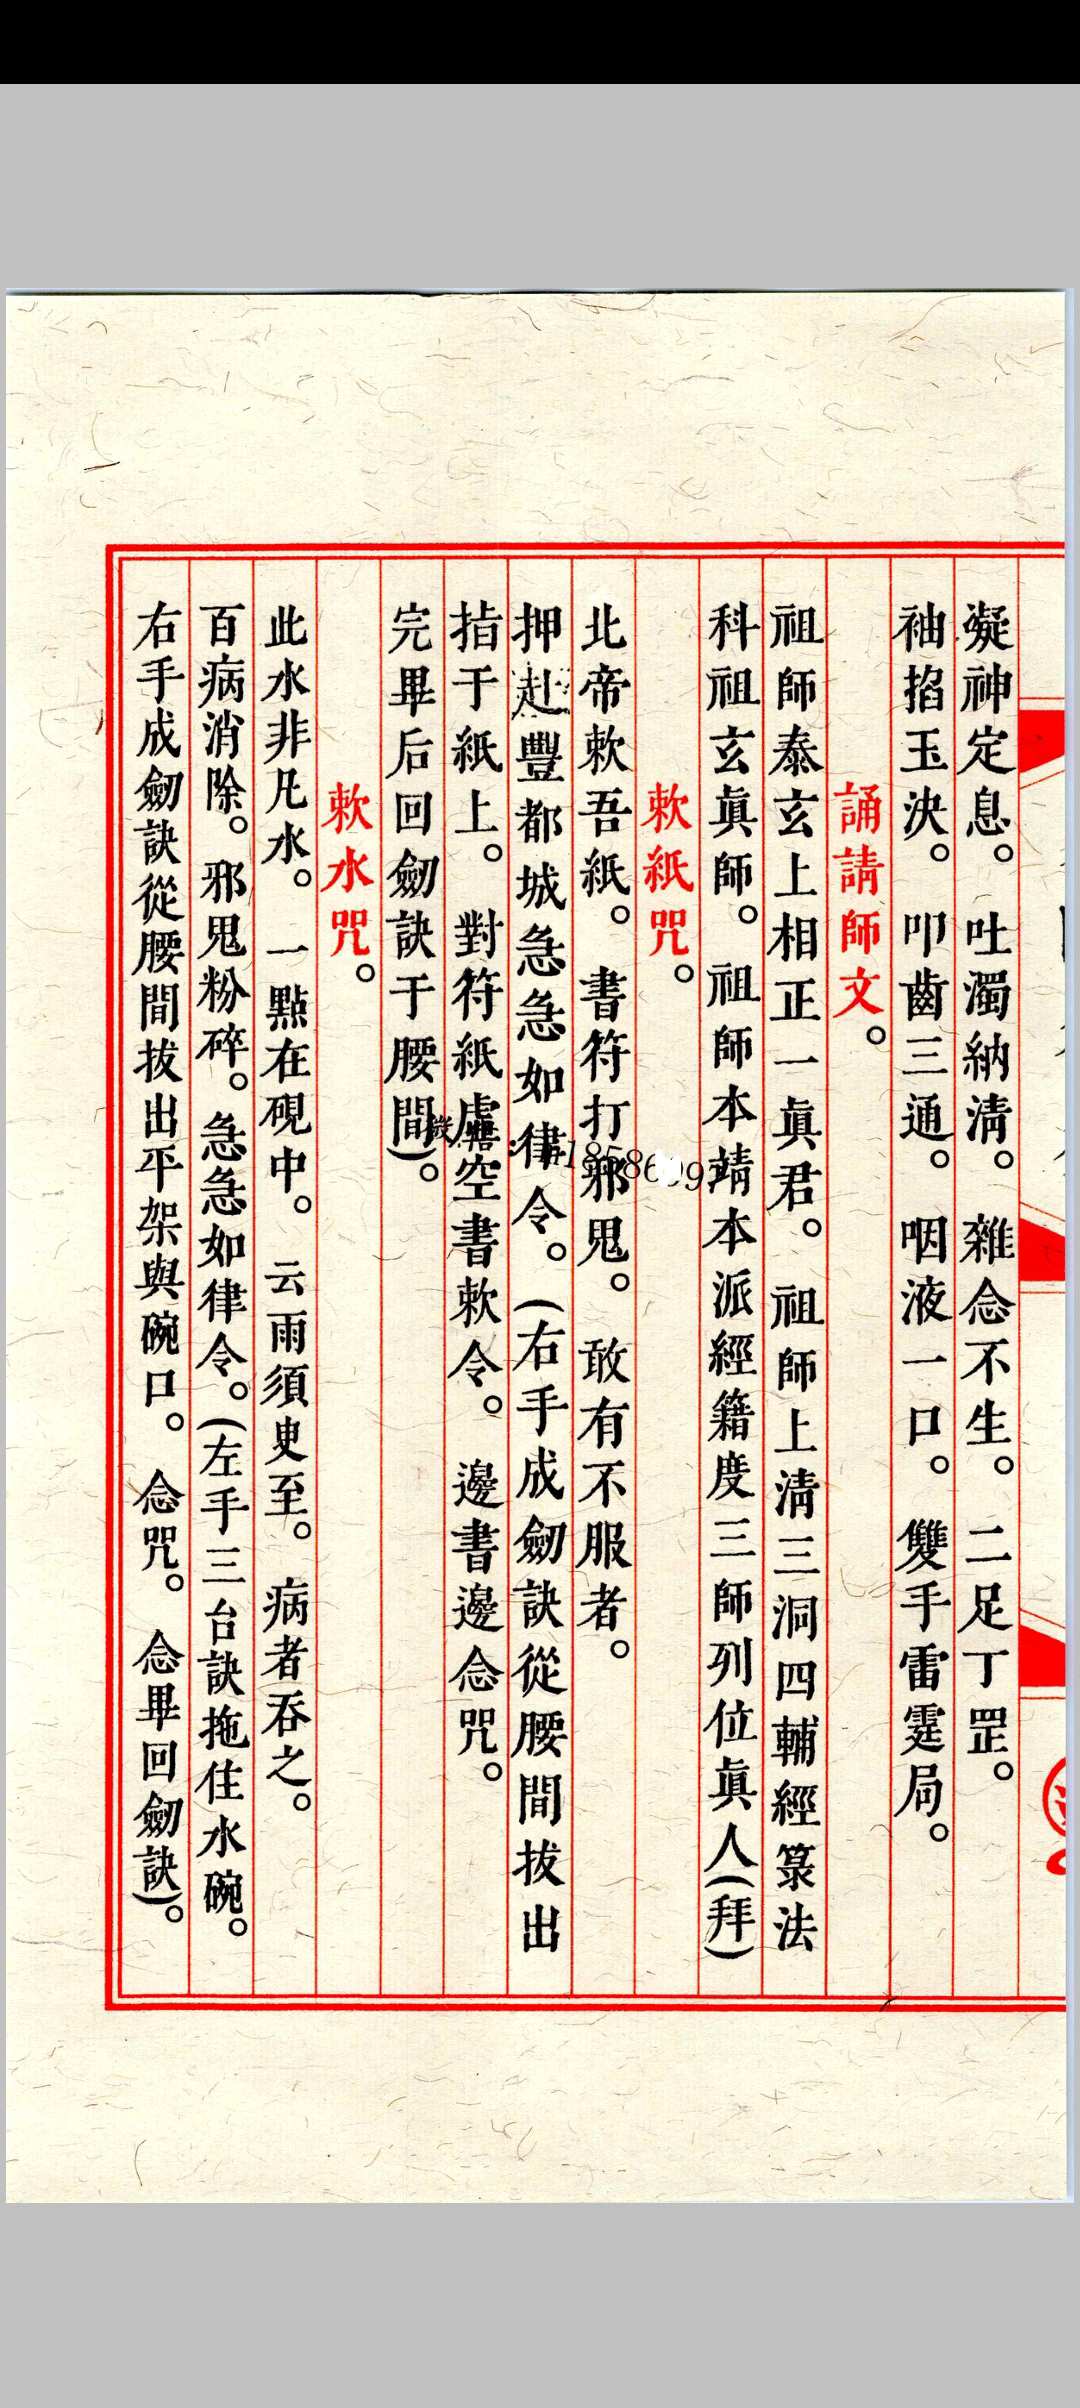 凝神定息。吐濁納清。雜念不生。二足丁罡。
袖掐玉決。叩齒三通。咽液一口。雙手雷霆局。
誦請師文。
祖師泰玄上相正一真君。祖師上清三洞四輔經籙法
科祖玄真師。祖師本靖本派經籍度三師列位真人(拜)
敕紙咒。
北帝敕吾紙。書符打邪鬼。敢有不服者。
押赴豐都城急急如律令。(右手成劍訣從腰間拔出
指于紙上。對符紙虛空書敕令。邊書邊念咒。
完畢后回劍訣于腰間)。
敕水咒。
此水非凡水。一點在硯中。云雨須臾至。病者吞之。
百病消除。邪鬼粉碎。急急如律令。(左手三台訣拖住水碗。
右手成劍訣從腰間拔出平架與碗口。念咒。念畢回劍訣)。